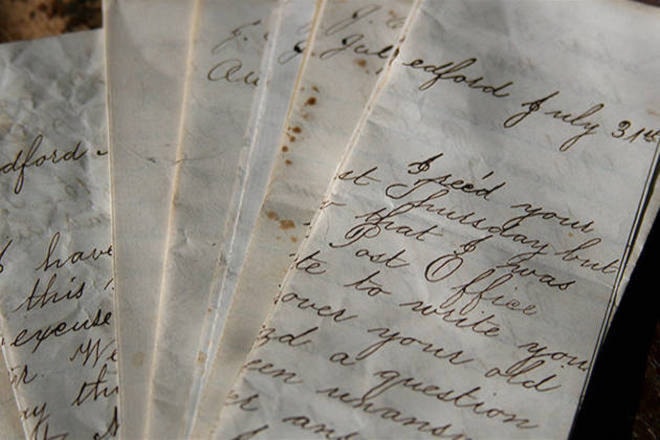 dford
I have
this
excuse
We
J.
Au
J.
J. Jul
edford July 31st
I rec'd your
st Thursday but
that I was
Post Office
te to write you
over your old
a question
een unansw